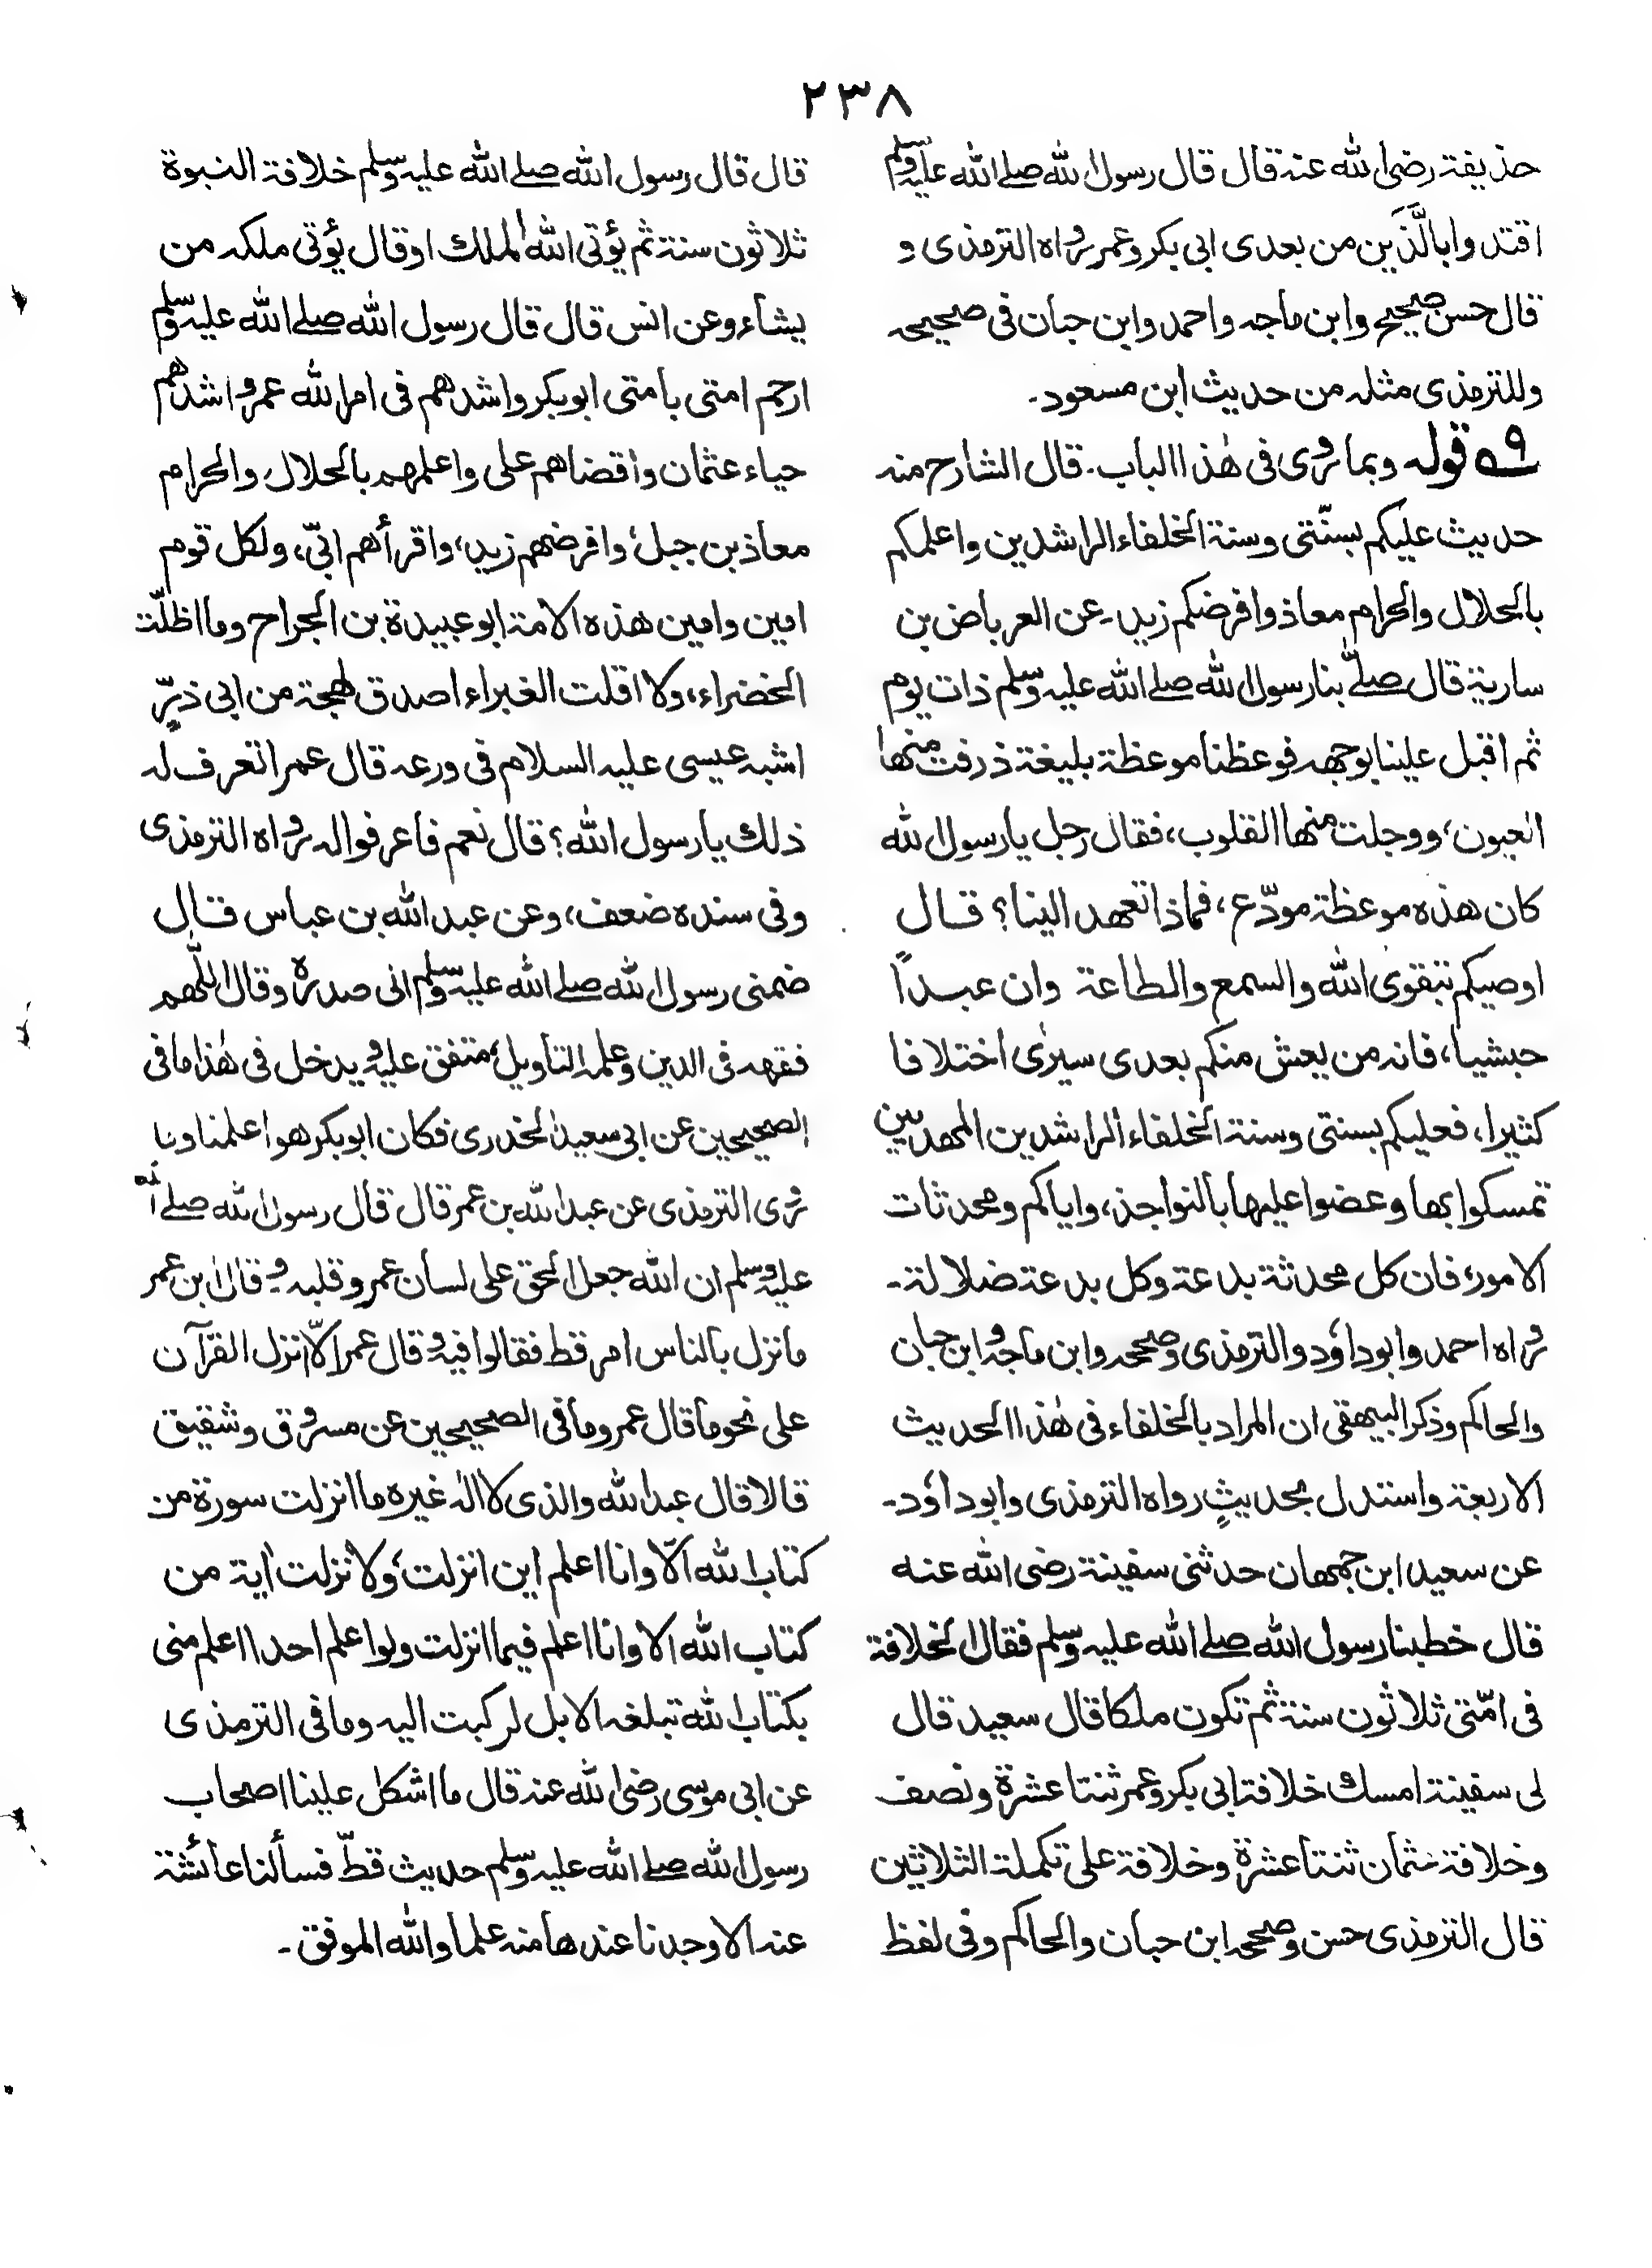 ٢٣٨
حذيفة رضى الله عنه قال قال رسول الله صلے الله عليه وسلم
اقتدوا بالَّذَين من بعدى ابى بكر وعمر رواه الترمذى و
قال حسن صحيح وابن ماجه واحمد وابن حبان فى صحيحه
وللترمذى مثله من حديث ابن مسعود۔
٩ قوله وبما روى فى هٰذا الباب۔ قال الشارح منه
حديث عليكم بسنّتى وسنة الخلفاء الراشدين واعلمكم
بالحلال والحرام معاذ وافرضكم زيد۔ عن العرباض بن
سارية قال صلّے بنا رسول الله صلے الله عليه وسلم ذات يوم
ثم اقبل علينا بوجهه فوعظنا موعظة بليغة ذرفت منها
العيون، ووجلت منها القلوب، فقال رجل يا رسول الله
كان هذه موعظة مودّع، فماذا تعهد الينا؟ قال
اوصيكم بتقوى الله والسمع والطاعة وان عبداً
حبشيا، فانه من يعش منكم بعدى سيرىٰ اختلافا
كثيرا، فعليكم بسنتى وسنة الخلفاء الراشدين المهديين
تمسكوا بها وعضوا عليها بالنواجذ، واياكم ومحدثات
الامور، فان كل محدثة بدعة وكل بدعة ضلالة۔
رواه احمد وابوداؤد والترمذى وصححه وابن ماجه وابن حبان
والحاكم وذكر البيهقى ان المراد بالخلفاء فى هٰذا الحديث
الاربعة واستدل بحديثٍ رواه الترمذى وابوداؤد۔
عن سعيد ابن جمهان حدثنى سفينة رضى الله عنه
قال خطبنا رسول الله صلے الله عليه وسلم فقال الخلافة
فى امّتى ثلاثون سنة ثم تكون ملكا قال سعيد قال
لى سفينة امسك خلافة ابى بكر وعمر ثنتا عشرة ونصف
وخلافة عثمان ثنتا عشرة وخلافة على تكملة الثلاثين
قال الترمذى حسن وصححه ابن حبان والحاكم وفى لفظ
قال قال رسول الله صلے الله عليه وسلم خلافة النبوة
ثلاثون سنة ثم يؤتى الله الملك اوقال يؤتى ملكه من
يشاء وعن انس قال قال رسول الله صلے الله عليه وسلم
ارحم امتى بامتى ابوبكر واشدهم فى امر الله عمر واشدهم
حياء عثمان واقضاهم على واعلمهم بالحلال والحرام
معاذ بن جبل، وافرضهم زيد، واقرأهم ابىّ، ولكل قوم
امين وامين هذه الامة ابوعبيدة بن الجراح وما اظلّت
الخضراء، ولا اقلت الغبراء اصدق لهجة من ابى ذرٍّ
اشبه عيسى عليه السلام فى ورعه قال عمر اتعرف له
ذلك يا رسول الله؟ قال نعم فاعرفوا له رواه الترمذى
وفى سنده ضعف، وعن عبدالله بن عباس قال
ضمنى رسول الله صلے الله عليه وسلم الى صدره وقال اللّهم
فقهه فى الدين وعلمه التاويل، متفق عليه ويدخل فى هٰذا ما فى
الصحيحين عن ابى سعيد الخدرى فكان ابوبكر هو اعلمنا وبا
روى الترمذى عن عبدالله بن عمر قال قال رسول الله صلے الله
عليه وسلم ان الله جعل الحق على لسان عمر وقلبه۔ وقال ابن عمر
ما نزل بالناس امر قط فقالوا فيه وقال عمر الّا نزل القرآن
على نحو ما قال عمر وما فى الصحيحين عن مسروق وشقيق
قالا قال عبدالله والذى لا اله غيره ما انزلت سورة من
كتاب الله الّا وانا اعلم اين انزلت، ولا نزلت اٰية من
كتاب الله الا وانا اعلم فيما انزلت ولو اعلم احدا اعلم منى
بكتاب الله تبلغه الابل لركبت اليه وما فى الترمذى
عن ابى موسى رضى الله عنه قال ما اشكل علينا اصحاب
رسول الله صلے الله عليه وسلم حديث قطّ فسألنا عائشة
عنه الا وجدنا عندها منه علما والله الموفق۔